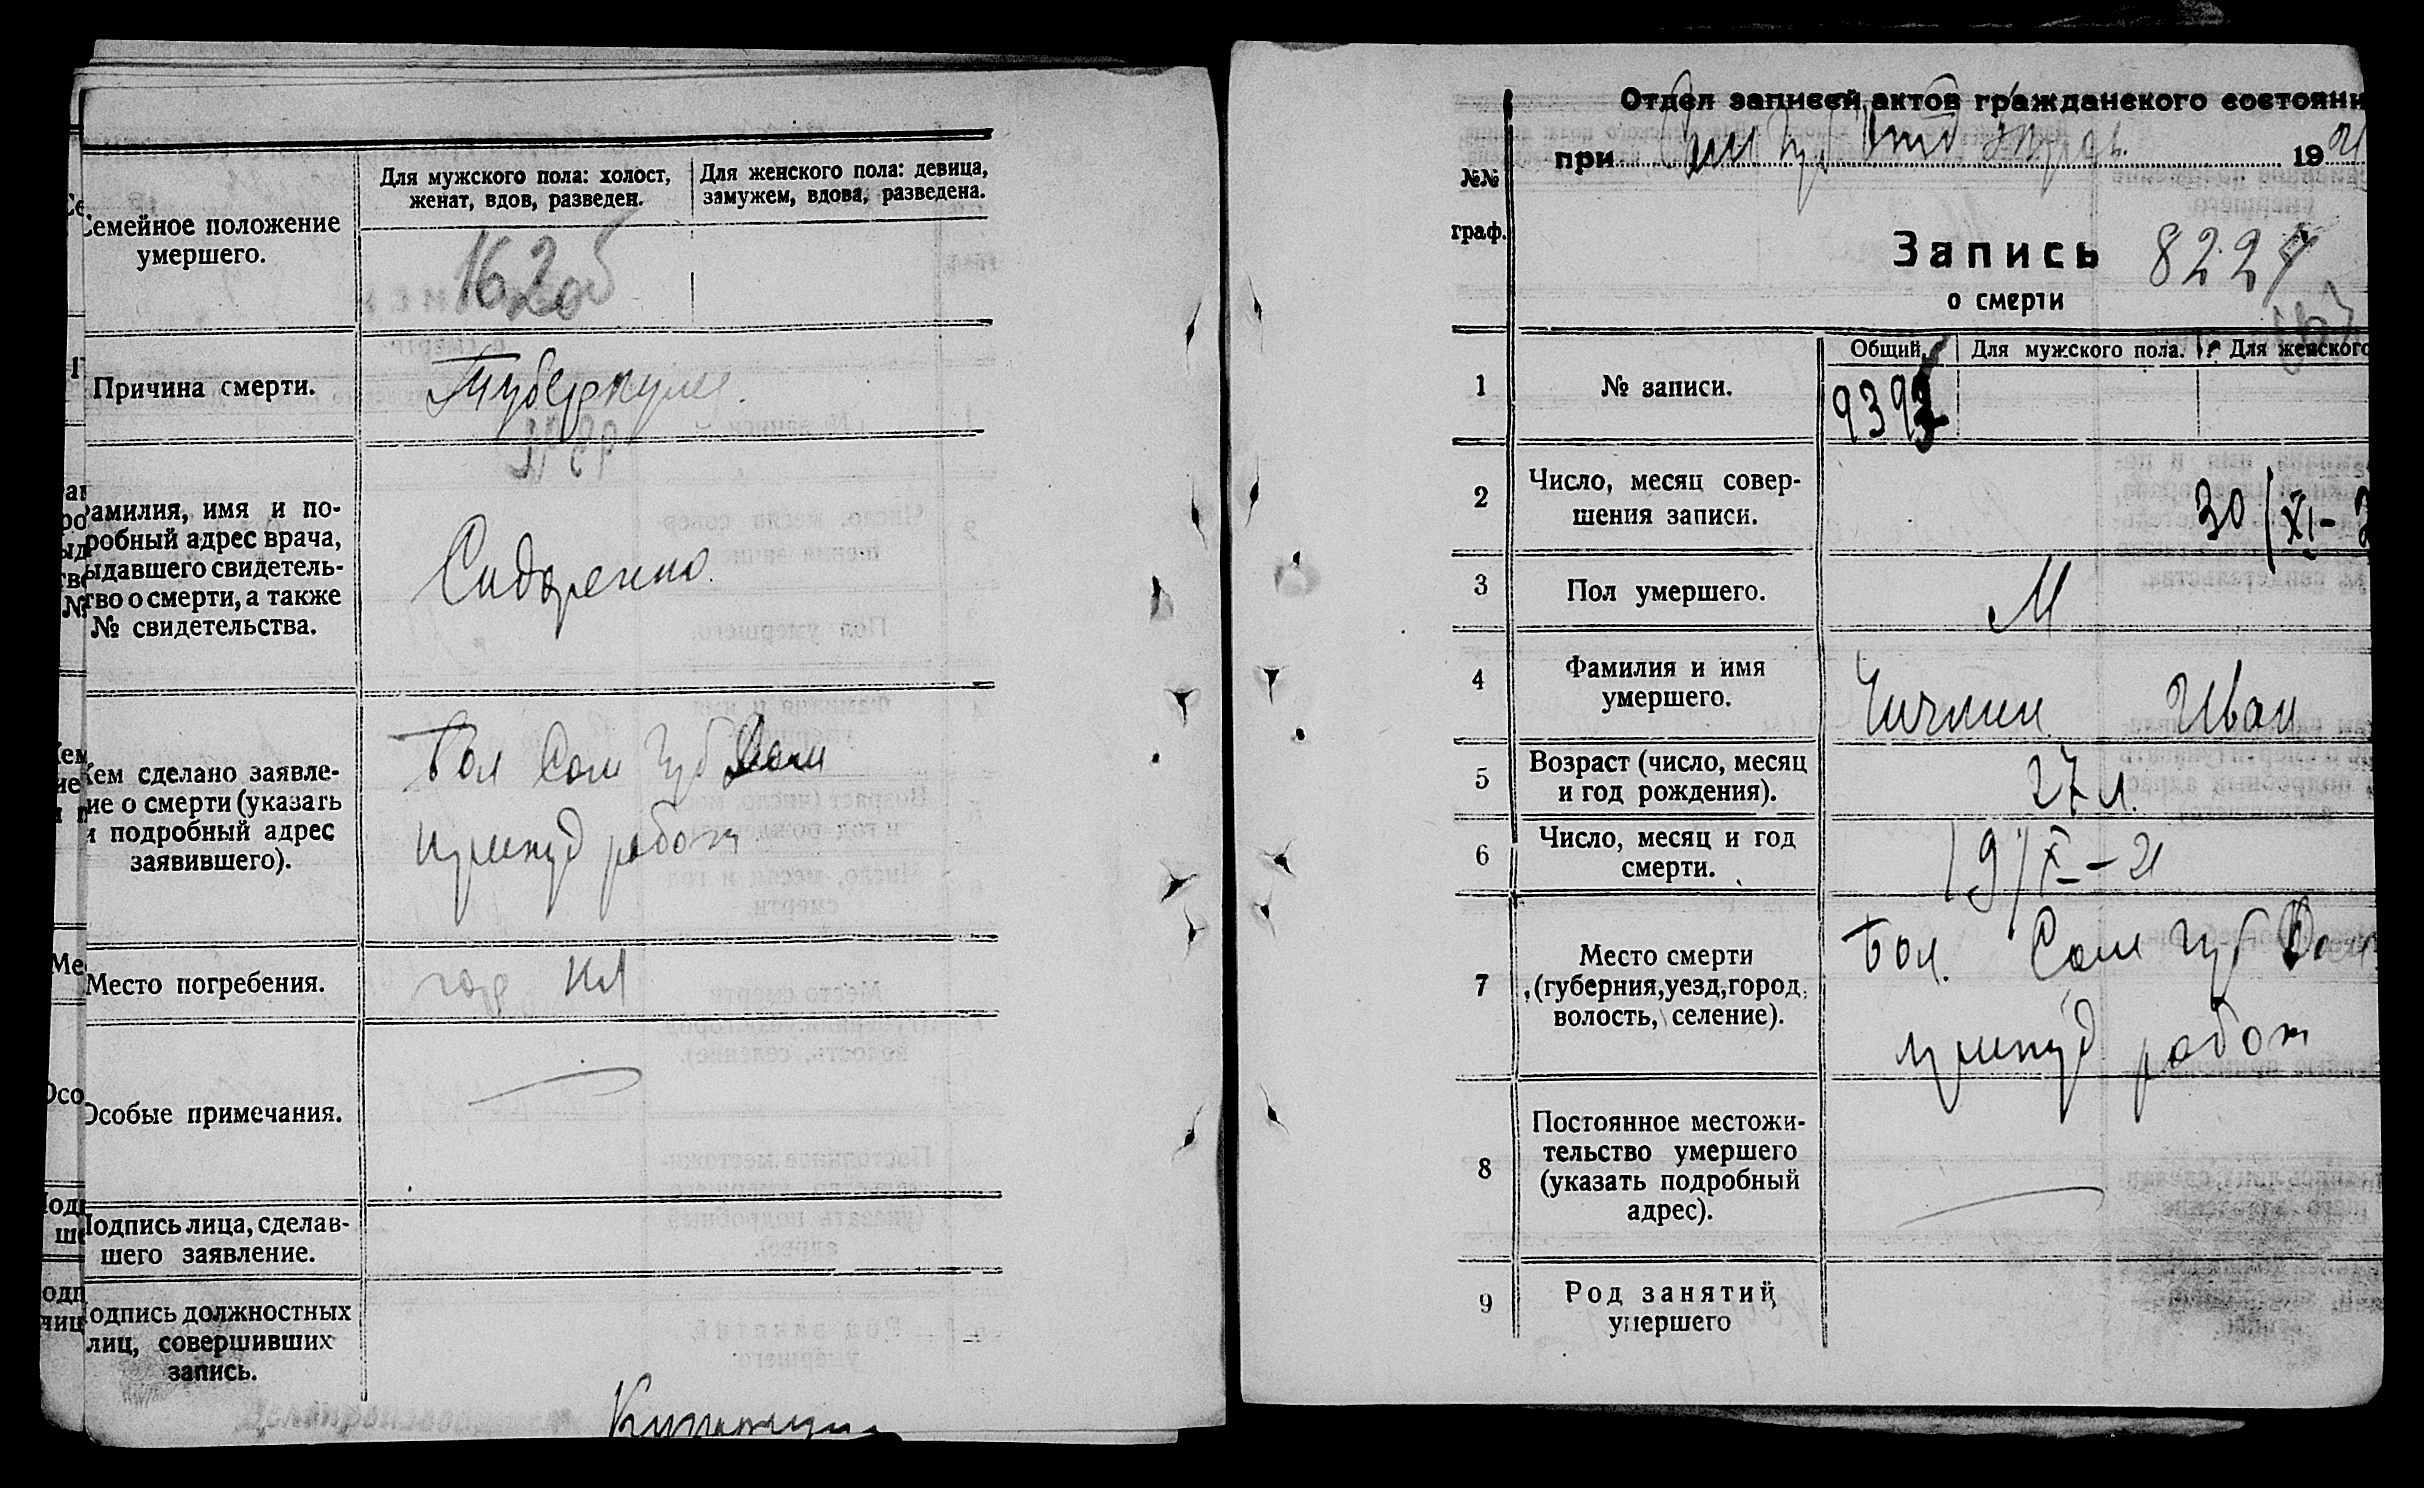 Семейное положение
умершего.
Для мужского пола: холост,
женат, вдов, разведен.
Для женского пола: девица,
замужем, вдова, разведена.
162об
Причина смерти.
Туберкулез.
Фамилия, имя и по-
робный адрес врача,
ыдавшего свидетель-
тво о смерти, а также
№ свидетельства.
Сидоренко.
Кем сделано заявле-
ие о смерти (указать
и подробный адрес
заявившего).
Бол Сам Губ
принуд работ
Место погребения.
гор кл
Особые примечания.
Подпись лица, сделав-
шего заявление.
одпись должностных
лиц, совершивших
запись.
Отдел записей актов гражданского состояни
при 1921
№№
граф.
Запись 8227
о смерти
1 № записи.
Общий. Для мужского пола. Для женского
939
2 Число, месяц совер-
шения записи.
30/XI-2
3 Пол умершего.
М
4 Фамилия и имя
умершего.
Иван
5 Возраст (число, месяц
и год рождения).
27 л.
6 Число, месяц и год
смерти.
19/X-21
7 Место смерти
(губерния, уезд, город,
волость, селение).
Бол. Сам Губ
принуд работ
8 Постоянное местожи-
тельство умершего
(указать подробный
адрес).
9 Род занятий
умершего